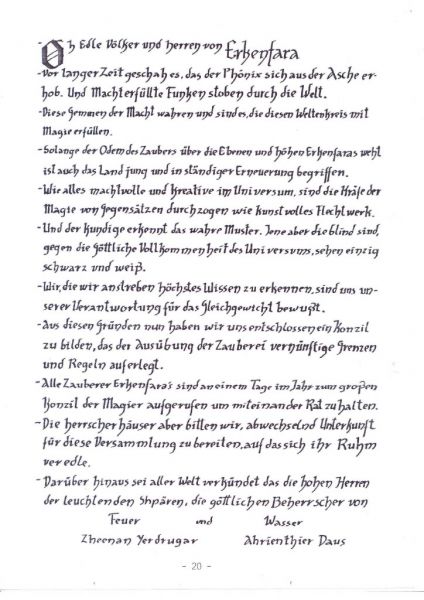 - Oh Edle Völker und Herren von Erkenfara
- Vor langer Zeit geschah es, das der Phönix sich aus der Asche er-
hob. Und Macht erfüllte Funken stoben durch die Welt.
- Diese Gemmen der Macht wahren und sind es, die diesen Weltenkreis mit
Magie erfüllen.
- Solange der Odem des Zaubers über die Ebenen und höhen Erkenfaras weht
ist auch das Land jung und in ständiger Erneuerung begriffen.
- Wie alles machtvolle und Kreative im Universum, sind die Kräfte der
Magie von Gegensätzen durchzogen wie kunstvolles Flechtwerk.
- Und der kundige erkennt das wahre Muster. Jene aber die blind sind,
gegen die Göttliche Vollkommenheit des Universums, sehen einzig
schwarz und weiß.
- Wir, die wir anstreben höchstes Wissen zu erkennen, sind uns un-
serer Verantwortung für das Gleichgewicht bewußt.
- Aus diesen Gründen nun haben wir uns entschlossen ein Konzil
zu bilden, das der Ausübung der Zauberei vernünftige Grenzen
und Regeln auferlegt.
- Alle Zauberer Erkenfara's sind an einem Tage im Jahr zum großen
Konzil der Magier aufgerufen um miteinander Rat zu halten.
- Die herrscherhäuser aber bitten wir, abwechselnd Unterkunft
für diese Versammlung zu bereiten, auf das sich ihr Ruhm
veredle.
- Darüber hinaus sei aller Welt verkündet das die hohen Herren
der leuchtenden Shpären, die göttlichen Beherrscher von
Feuer und Wasser
Zheenan Yerdrugar Ahrienthier Daus
- 20 -